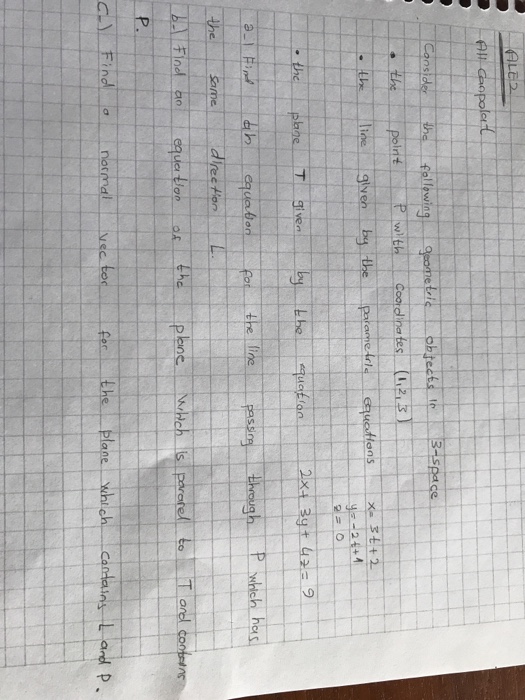 ALE2
Ali Canpolat
Consider the following geometric objects in 3-space
• the point P with coordinates (1,2,3)
• the line given by the parametric equations x = 3t+2
y = -2t+1
z = 0
• the plane T given by the equation 2x+3y+4z=9
a-) Find an equation for the line passing through P which has
the same direction L.
b-) Find an equation of the plane which is paralel to T and contains
P.
c-) Find a normal vector for the plane which contains L and P.